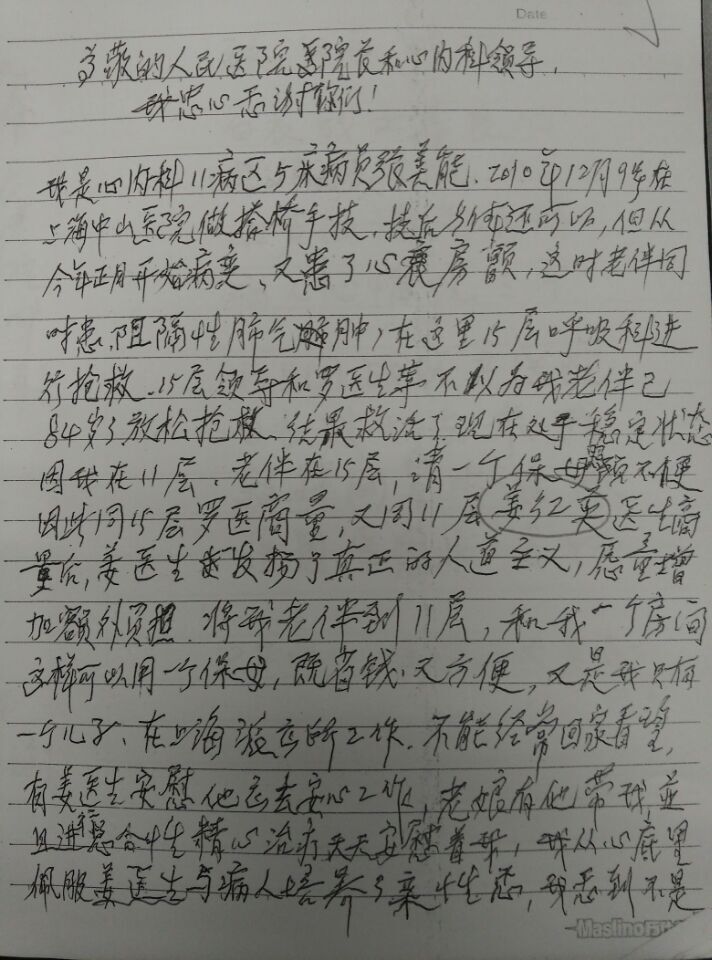 Date
尊敬的人民医院医院长和心内科领导,
我忠心感谢你们!
我是心内科11病区5床病员张美能.2010年12月9号在
上海中山医院做搭桥手技,技后身体还可以,但从
今年正月开始病变、又患了心衰房颤,这时老伴同
时患,阻隔性肺气肿,在这里15层呼吸科进
行抢救.15层领导和罗医生等不以为我老伴已
84岁了放松抢救、结果救活了现在处于稳定状态
因我在11层、老伴在15层,请一个保母照顾不便
因此同15层罗医商量,又同11层姜红英医生商
量后,姜医生发扬了真正的人道主义,愿意增
加额外负担.将我老伴到11层,和我一个房间
这样可以用一个保母,既省钱、又方便,又是我只有
一个儿子、在上海工作.不能经常回家看望,
有姜医生安慰他回去安心工作,老娘有他带我并
且进行综合性精心治疗天天安慰着我,我从心底里
佩服姜医生与病人培养了亲性感,我感到不是
Maslino